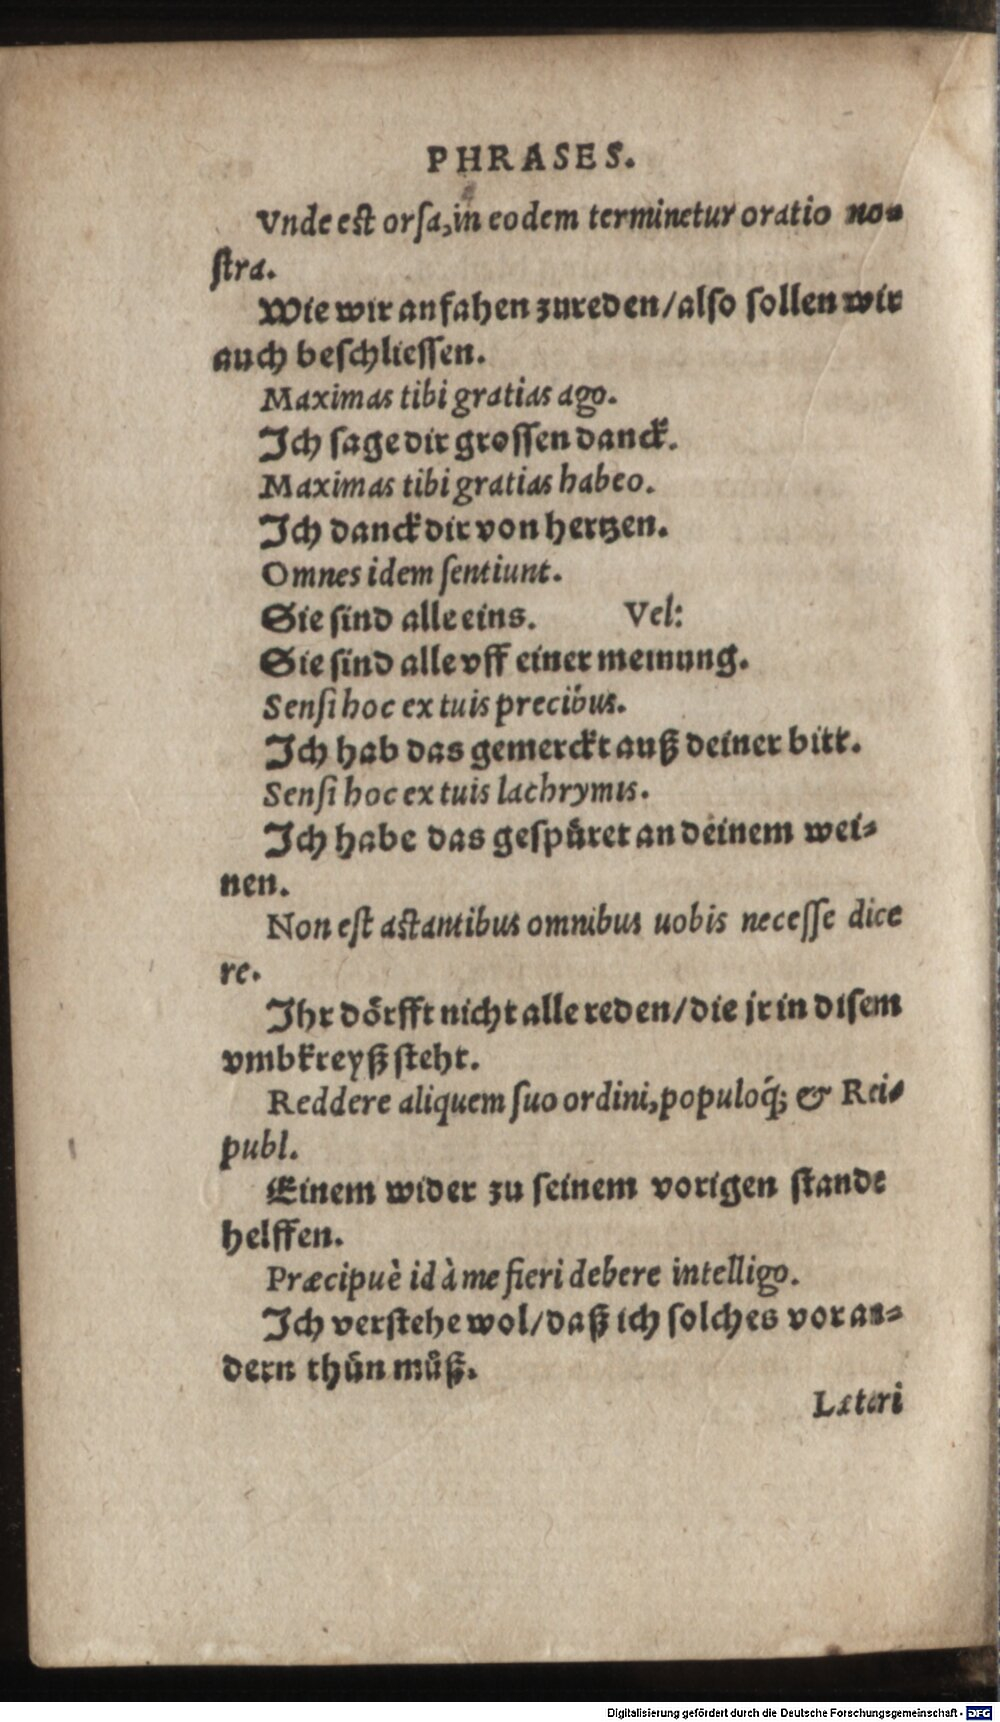 PHRASES.
Vnde est orſa, in eodem terminetur oratio no-
ſtra.
Wie wir anfahen zureden/also sollen wir
auch beschliessen.
Maximas tibi gratias ago.
Ich sage dir grossen danck.
Maximas tibi gratias habeo.
Ich danck dir von hertzen.
Omnes idem ſentiunt.
Sie sind alle eins. Vel:
Sie sind alle vff einer meinung.
Senſi hoc ex tuis precibus.
Ich hab das gemerckt auß deiner bitt.
Senſi hoc ex tuis lachrymis.
Ich habe das gespuͤret an deinem wei-
nen.
Non eſt aſtantibus omnibus uobis neceſſe dice
re.
Ihr doͤrfft nicht alle reden/die jr in disem
vmbkreyß steht.
Reddere aliquem ſuo ordini, populoq́; & Rei-
publ.
Einem wider zu seinem vorigen stande
helffen.
Præcipuè id à me fieri debere intelligo.
Ich verstehe wol/daß ich solches vor an-
dern thuͤn muͦß.
Lætari
Digitalisierung gefördert durch die Deutsche Forschungsgemeinschaft - DFG